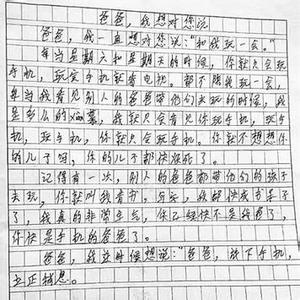 爸爸，我想对您说
爸爸，我一直想对您说："和我玩一会。"
每当星期六和星期天的时候，你就只会玩
手机，玩完手机就看电视。都不陪我玩一会，
每当我看见别人的爸爸带他们去玩的时候，我
是多么的xiàn慕，我就只会看见你玩手机，玩手
机，玩手机，你就只会玩手机。你就不想想你
的儿子吗，你的儿子都快疯了。
记得有一次，别人的爸爸都带他们的孩子
去玩，你就叫我看书，写字，我都快成书呆子
了，我真的非常生气，你已经快不是我爸了，
你快是手机的爸爸了。
爸爸，我这时候想说："爸爸，放下手机，
立正稍息。